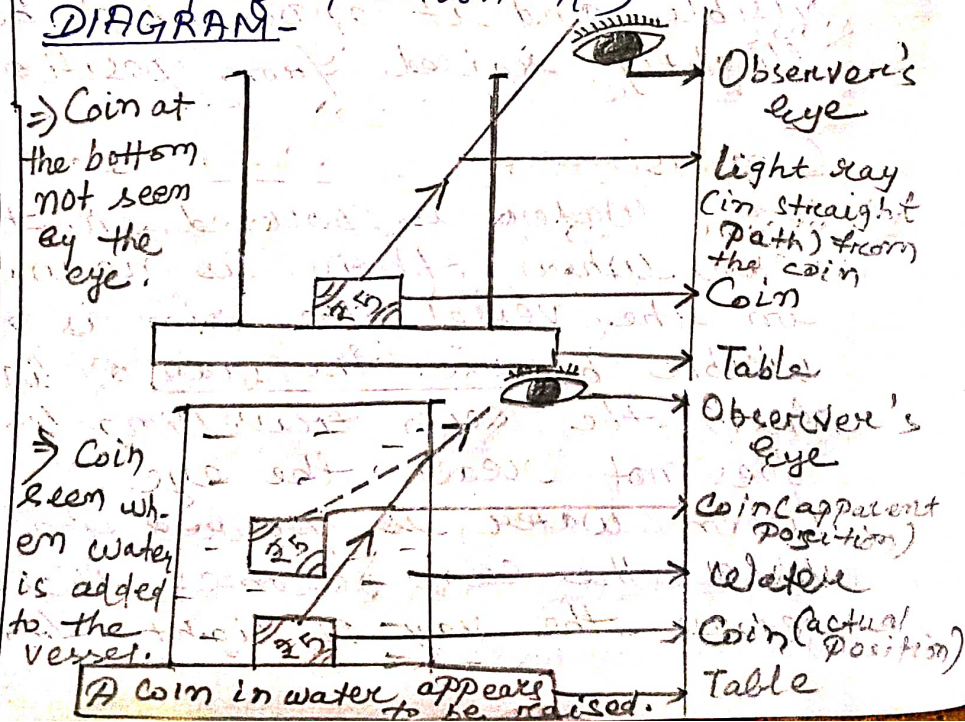 DIAGRAM-
⇒ Coin at
the bottom
not seem
by the
eye.
Observer's
eye
light ray
(in straight
Path) from
the coin
Coin
Table
₹5
⇒ Coin
seen wh-
en water
is added
to the
vessel.
Observer's
Eye
Coin (apparent
Position)
Water
Coin (actual
Position)
Table
₹5
₹5
A coin in water appears
to be raised.